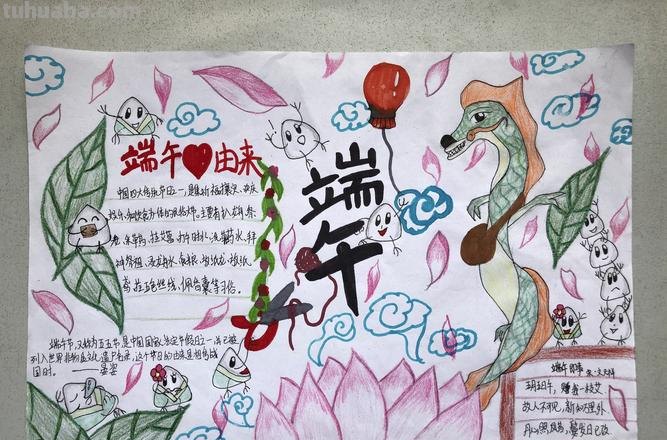 tuhuaba.com
端午 由来
中国四大传统节日之一,是集祈福攘灾、欢庆
娱乐和饮食为一体的民俗大节.主要有扒龙舟、祭
龙、采草药、挂艾草、打午时水、洗草药水、拜
神祭祖、浸龙舟水、食粽、放纸龙、放纸
鸢、拴五色丝线、佩香囊等习俗。
端午
端午节,又称为五五节,是中国国家法定节假日之一,并已被
列入世界非物质文化遗产名录,这个节日的由来是
国时。
端午即事 宋·文天祥
五月五日午,赠我一枝艾
故人不可见,新知万里外
丹心照夙昔,鬓发日已改